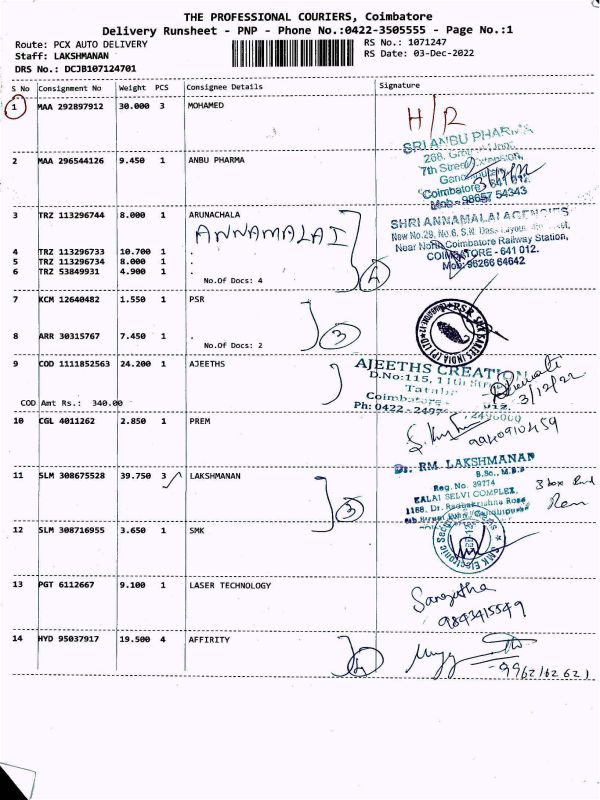 THE PROFESSIONAL COURIERS, Coimbatore
Delivery Runsheet - PNP - Phone No.:0422-3505555 - Page No.:1
Route: PCX AUTO DELIVERY
RS No.: 1071247
Staff: LAKSHMANAN
RS Date: 03-Dec-2022
DRS No.: DCJB107124701
S No Consignment No Weight PCS Consignee Details Signature
1 MAA 292897912 30.000 3 MOHAMED
H/R
SRI ANBU PHARMA
2 MAA 296544126 9.450 1 ANBU PHARMA
7th Street Extension,
Coimbatore 641 012.
3/12/22
Mob: 98657 54343
3 TRZ 113296744 8.000 1 ARUNACHALA
ANNAMALAI
SHRI ANNAMALAI AGENCIES
New No.29, No.6, S.N. Dass Layout, Street,
4 TRZ 113296733 10.700 1 .
Near North Coimbatore Railway Station,
5 TRZ 113296734 8.000 1 .
COIMBATORE - 641 012.
6 TRZ 53849931 4.900 1 .
Mob: 96266 64642
No.Of Docs: 4
4
7 KCM 12640482 1.550 1 PSR
8 ARR 30315767 7.450 1 .
No.Of Docs: 2
3
9 COD 1111852563 24.200 1 AJEETHS
AJEETHS CREATION
D.No:115, 11th Street
3/12/22
COD Amt Rs.: 340.00
10 CGL 4011262 2.850 1 PREM
9940910459
11 SLM 308675528 39.750 3 LAKSHMANAN
Dr. RM LAKSHMANAN
B.Sc., M.B.B
Reg. No. 39774
KALAI SELVI COMPLEX,
3 box
1168, Dr. Radhakrishna Road
3
12 SLM 308716955 3.650 1 SMK
SMK Electronic
13 PGT 6112667 9.100 1 LASER TECHNOLOGY
Sangatha
9843415549
14 HYD 95037917 19.500 4 AFFIRITY
4
9962162621